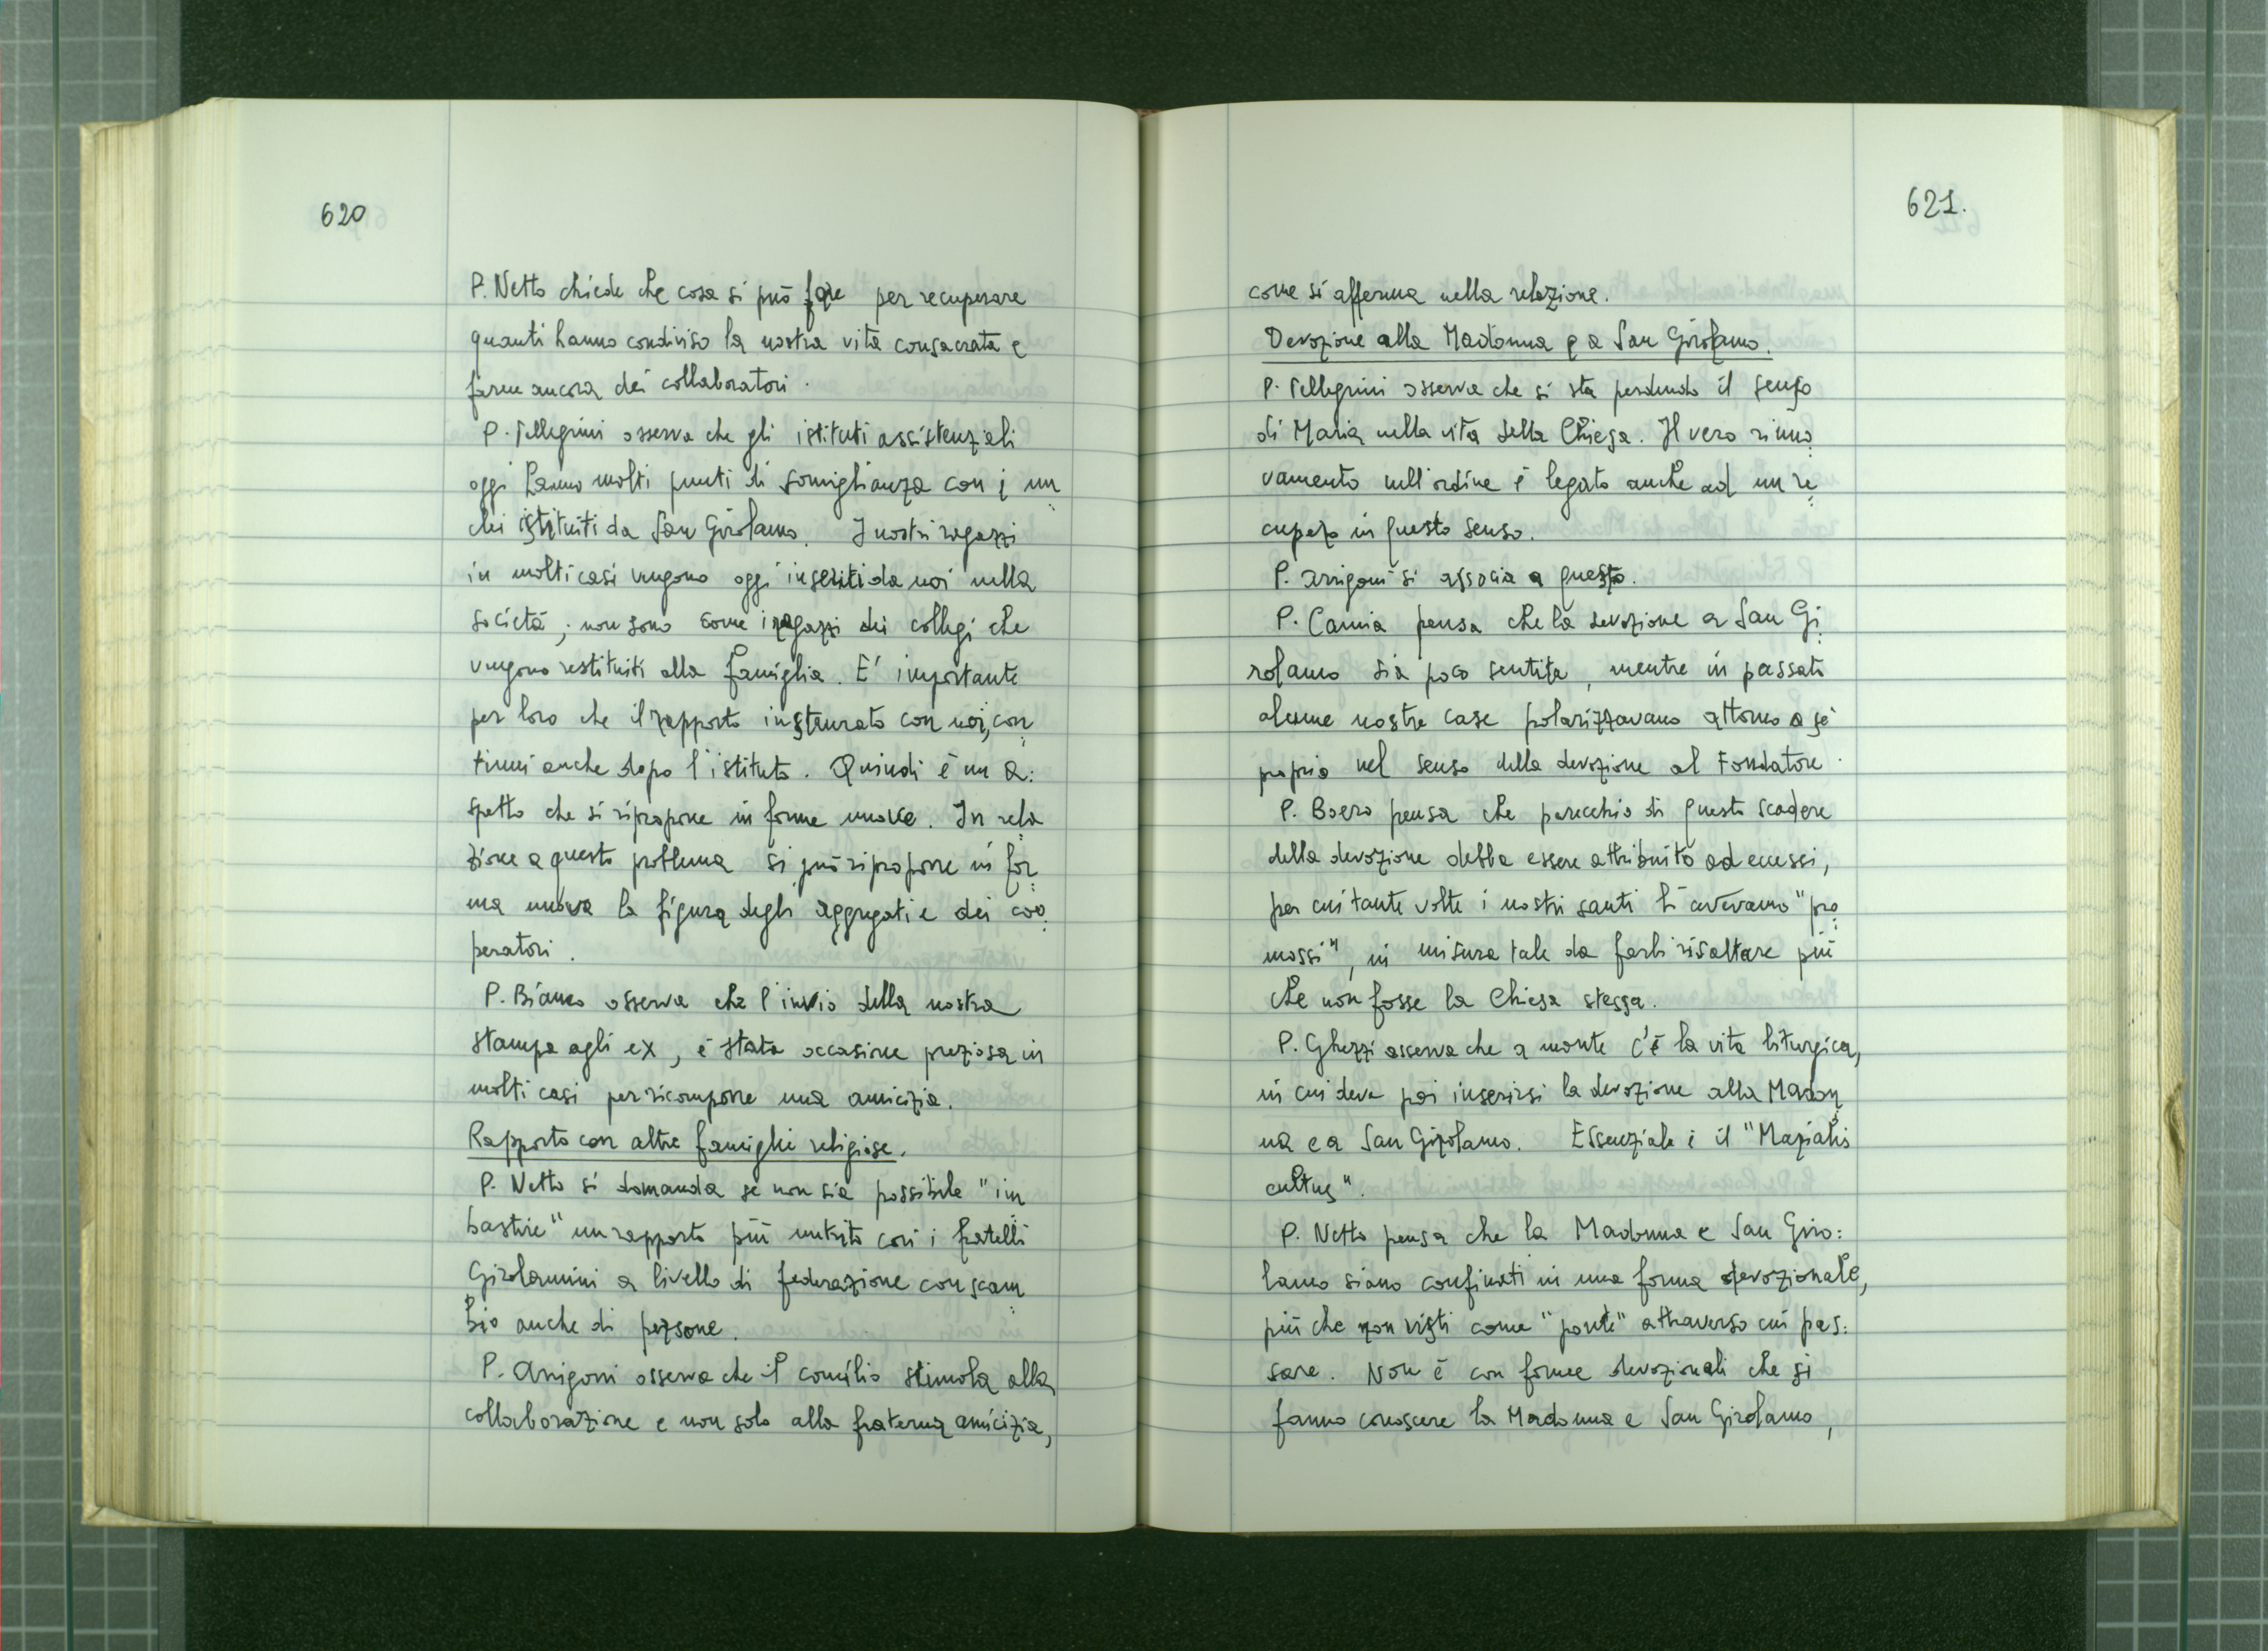 620
P. Netto chiede che cosa si può fare per recuperare
quanti hanno condiviso la nostra vita consacrata e
farne ancora dei collaboratori.
P. Pellegrini osserva che gli istituti assistenziali
oggi hanno molti punti di somiglianza con i un
chi istituiti da San Girolamo. I nostri ragazzi
in molti casi vengono oggi inseriti da noi nella
società; non sono come i ragazzi dei collegi che
vengono restituiti alla famiglia. E' importante
per loro che il rapporto instaurato con noi, con
tinui anche dopo l'istituto. Quindi è un a:
spetto che si ripropone in forme nuove. In rela
zione a questo problema si può riproporre in for
ma nuova la figura degli aggregati e dei coo
peratori.
P. Bianco osserva che l'invio della nostra
stampa agli ex, è stata occasione preziosa in
molti casi per ricomporre una amicizia.
Rapporto con altre famiglie religiose.
P. Netto si domanda se non sia possibile "im
bastire" un rapporto più nutrito con i fratelli
Girolamini a livello di federazione con scam
bio anche di persone.
P. Arrigoni osserva che il concilio stimola alla
collaborazione e non solo alla fraterna amicizia,
621.
come si afferma nella relazione.
Devozione alla Madonna e a San Girolamo.
P. Pellegrini osserva che si sta perdendo il senso
di Maria nella vita della Chiesa. Il vero rinno
vamento nell'ordine è legato anche ad un re
cupero in questo senso.
P. Arrigoni si associa a questo.
P. Camia pensa che la devozione a San Gi
rolamo sia poco sentita, mentre in passato
alcune nostre case polarizzavano attorno a sè
proprio nel senso della devozione al Fondatore.
P. Boero pensa che parecchio di questo scadere
della devozione debba essere attribuito ad eccessi,
per cui tante volte i nostri santi li avevamo "pro
mossi", in misura tale da farli risaltare più
che non fosse la Chiesa stessa.
P. Ghezzi osserva che a monte c'è la vita liturgica,
in cui deve poi inserirsi la devozione alla Madon
na e a San Girolamo. Essenziale è il "Marialis
cultus".
P. Netto pensa che la Madonna e San Giro:
lamo siano confinati in una forma devozionale,
più che non visti come "ponte" attraverso cui pas:
sare. Non è con forme devozionali che si
fanno conoscere la Madonna e San Girolamo,